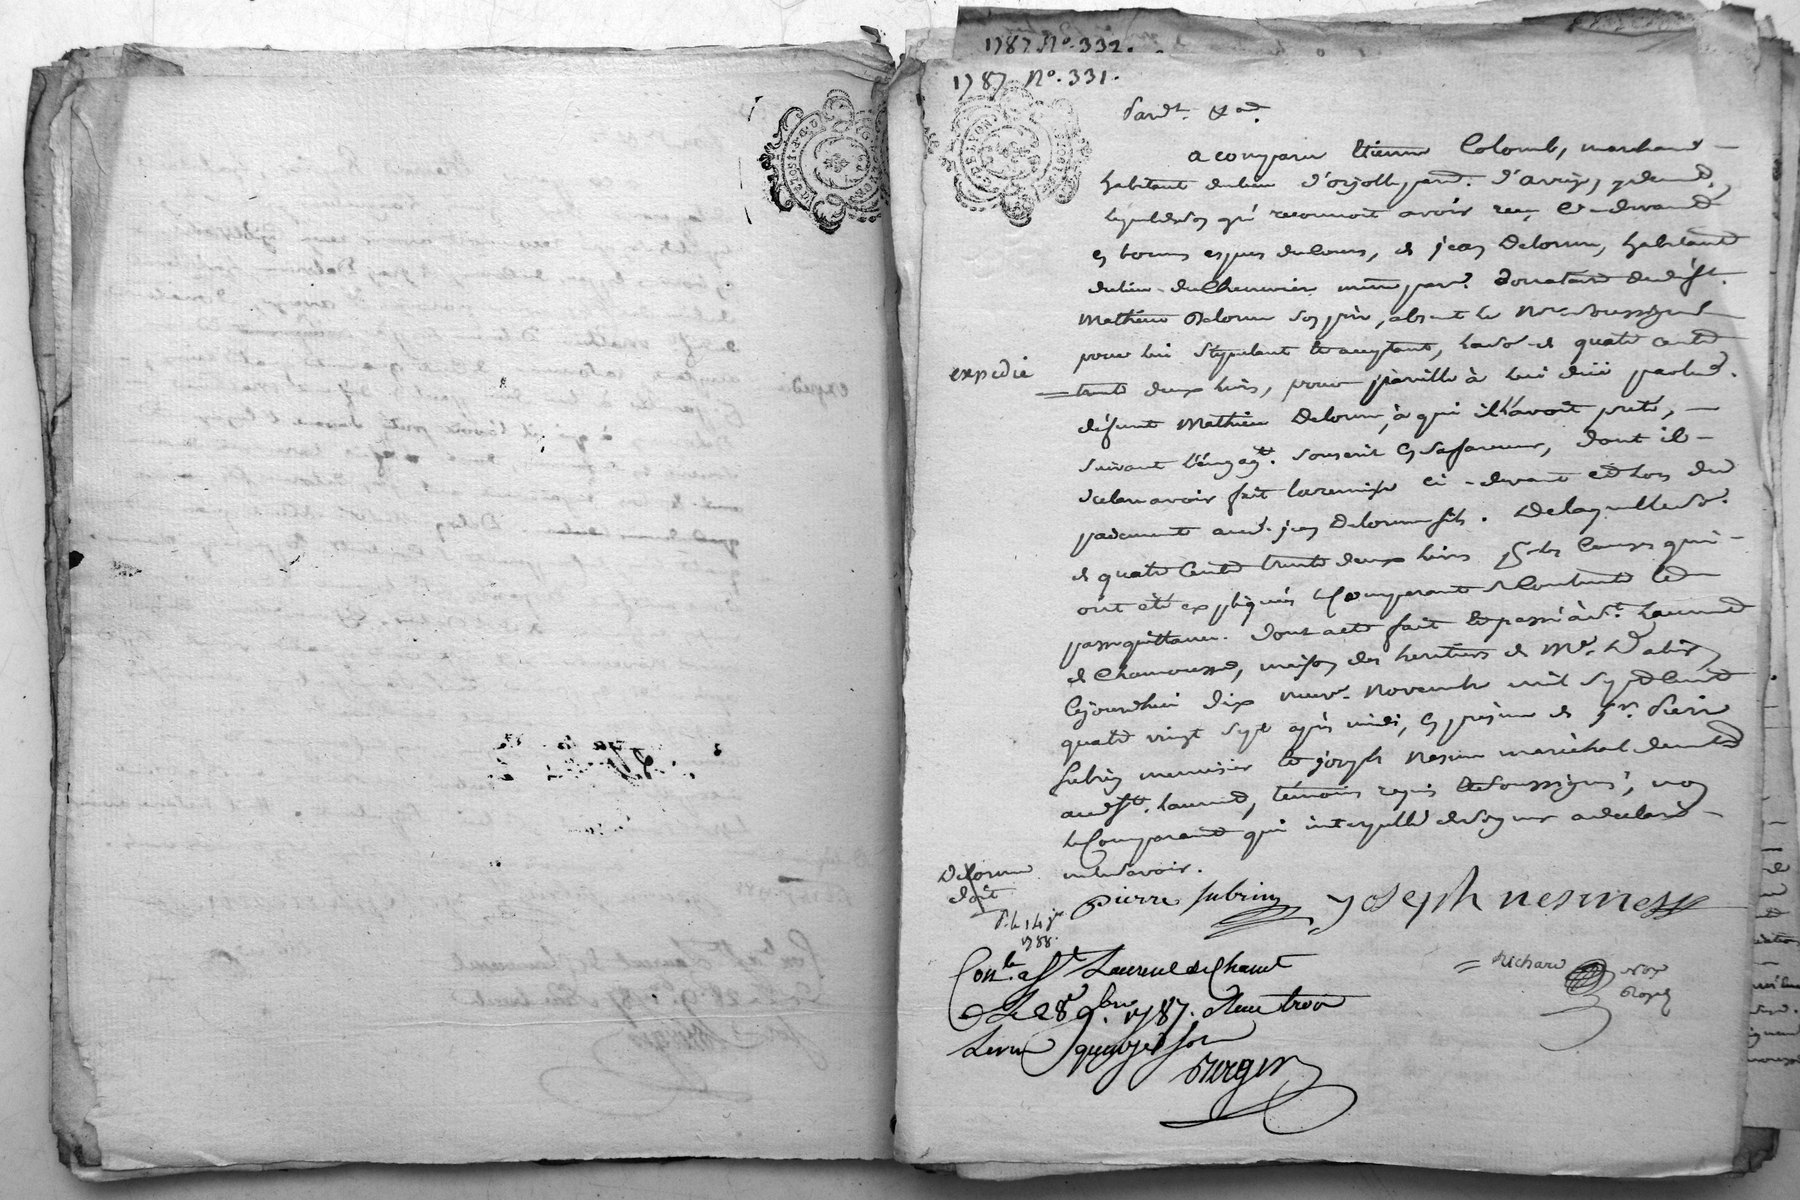 1787 N°. 332.
1787 N°. 331.
Pard.t &a.
a comparu Etienne Colomb, marchand
habitant du lieu d'orjolle par. d'
lequel de gré reconnoit avoir reçu Ci-devant
en bonnes especes du Cours, de jean Delorme, habitant
du lieu du Chennevier même par. Donataire dudeft.
Mathieu Delorme son père, absent le Nre. soussigné
pour lui stipulant & acceptant, la so. de quatre cent
expedié
trente deux livres, pour pareille à lui düe par led.
défunt Mathieu Delorme, à qui il l'avoit prêté,
suivant l'engagt. souscrit en sa faveur, dont il
declare avoir fait la remise ci-devant et lors du
paiement aud. jean Delorme fils. De laquelle so.
de quatre Cent trente deux livres & des Causes qui
ont été expliquées le Comparant se Contente et en
passe quittance. Dont acte fait & passé à St. Laurent
de Chamousset, maison des heritiers de Me.
Cejourdhui dix neuf Novembre mil sept Cent
quatre vingt sept après midi, en présence de Sr. Pierre
Subrin menuisier & joseph Nesme maréchal demt.
aud St. Laurent, témoins requis & soussignés, non
le Comparant qui interpellé de signer a declaré
ne le savoir.
Delorme
doit
P. le 14 jr
1788.
pierre subrin joseph nesmes
Con.le a St Laurent de Chamt
Le 28 9bre 1787. Reçu trois
Livres quinze sols
richard Nre
Royal